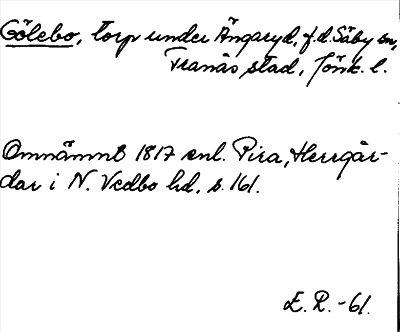 Gölebo, torp under Ängaryd, f.d. Säby sn,
Tranås stad, Jönk. l.
Omnämnt 1817 enl. Pira, Herrgår-
dar i N. Vedbo hd, s. 161.
E. R. -61.